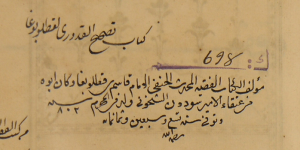 كتاب تصحيح القدوري لقطلوبغا
ك: ٦٩٨
مؤلف الكتاب الفقيه المحدث الحنفي الامام قاسم قطلوبغا وكان ابوه
من عتقاء الامير سودون الشيخوني ولد في المحرم سنة ٨٠٢
وتوفي سنة تسع وسبعين وثمانمائة
رحمه الله